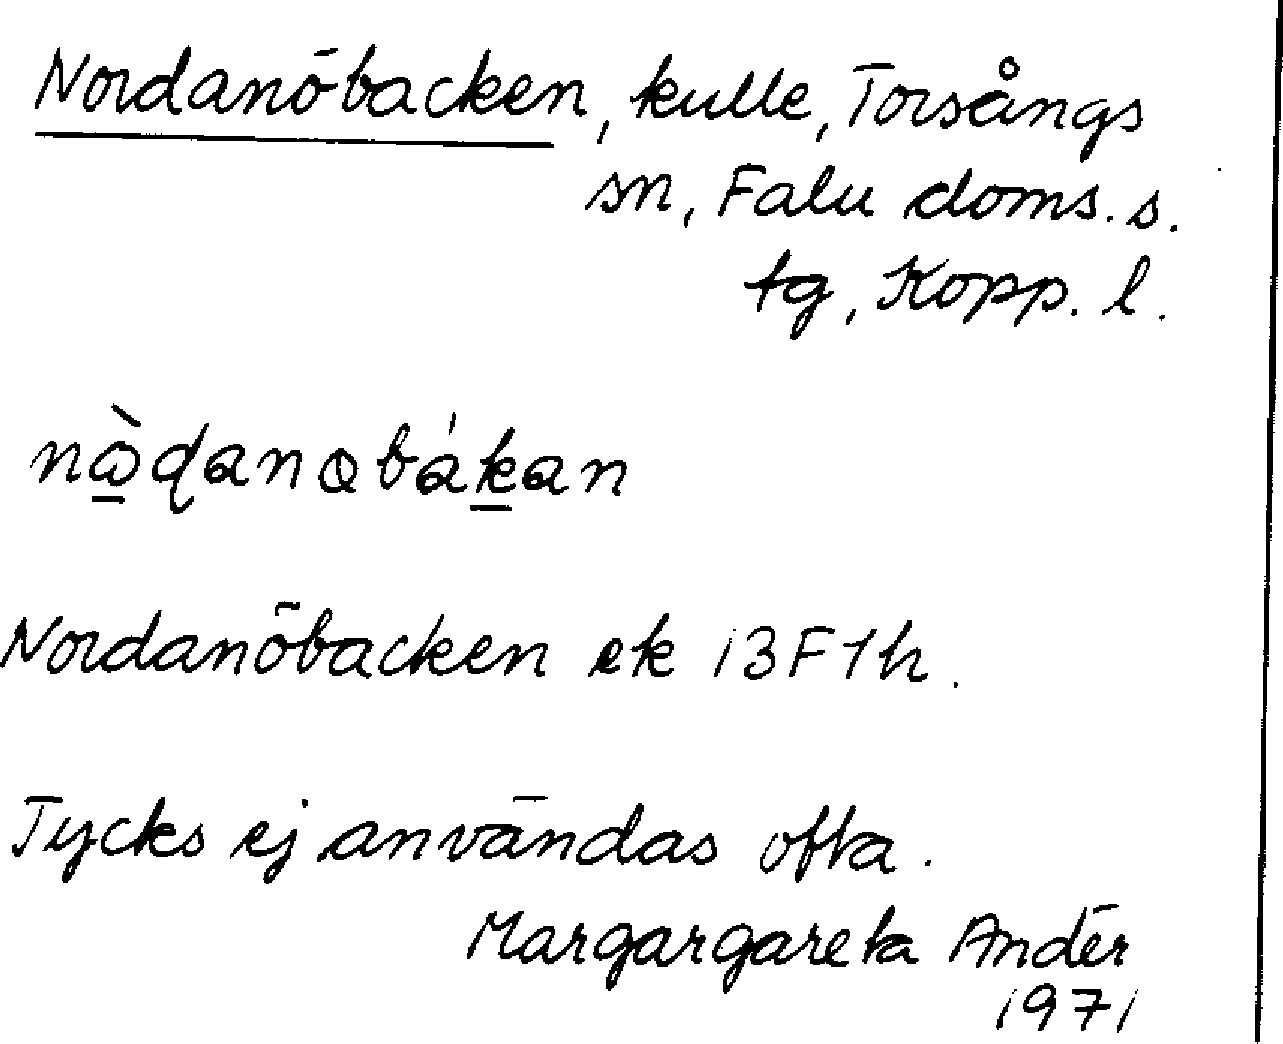 Nordanöbacken, kulle, Torsångs
sn, Falu doms. s.
tg, Kopp. l.
Nordanöbacken ek 13F1h.
Tycks ej användas ofta.
Margargareta Andér
1971